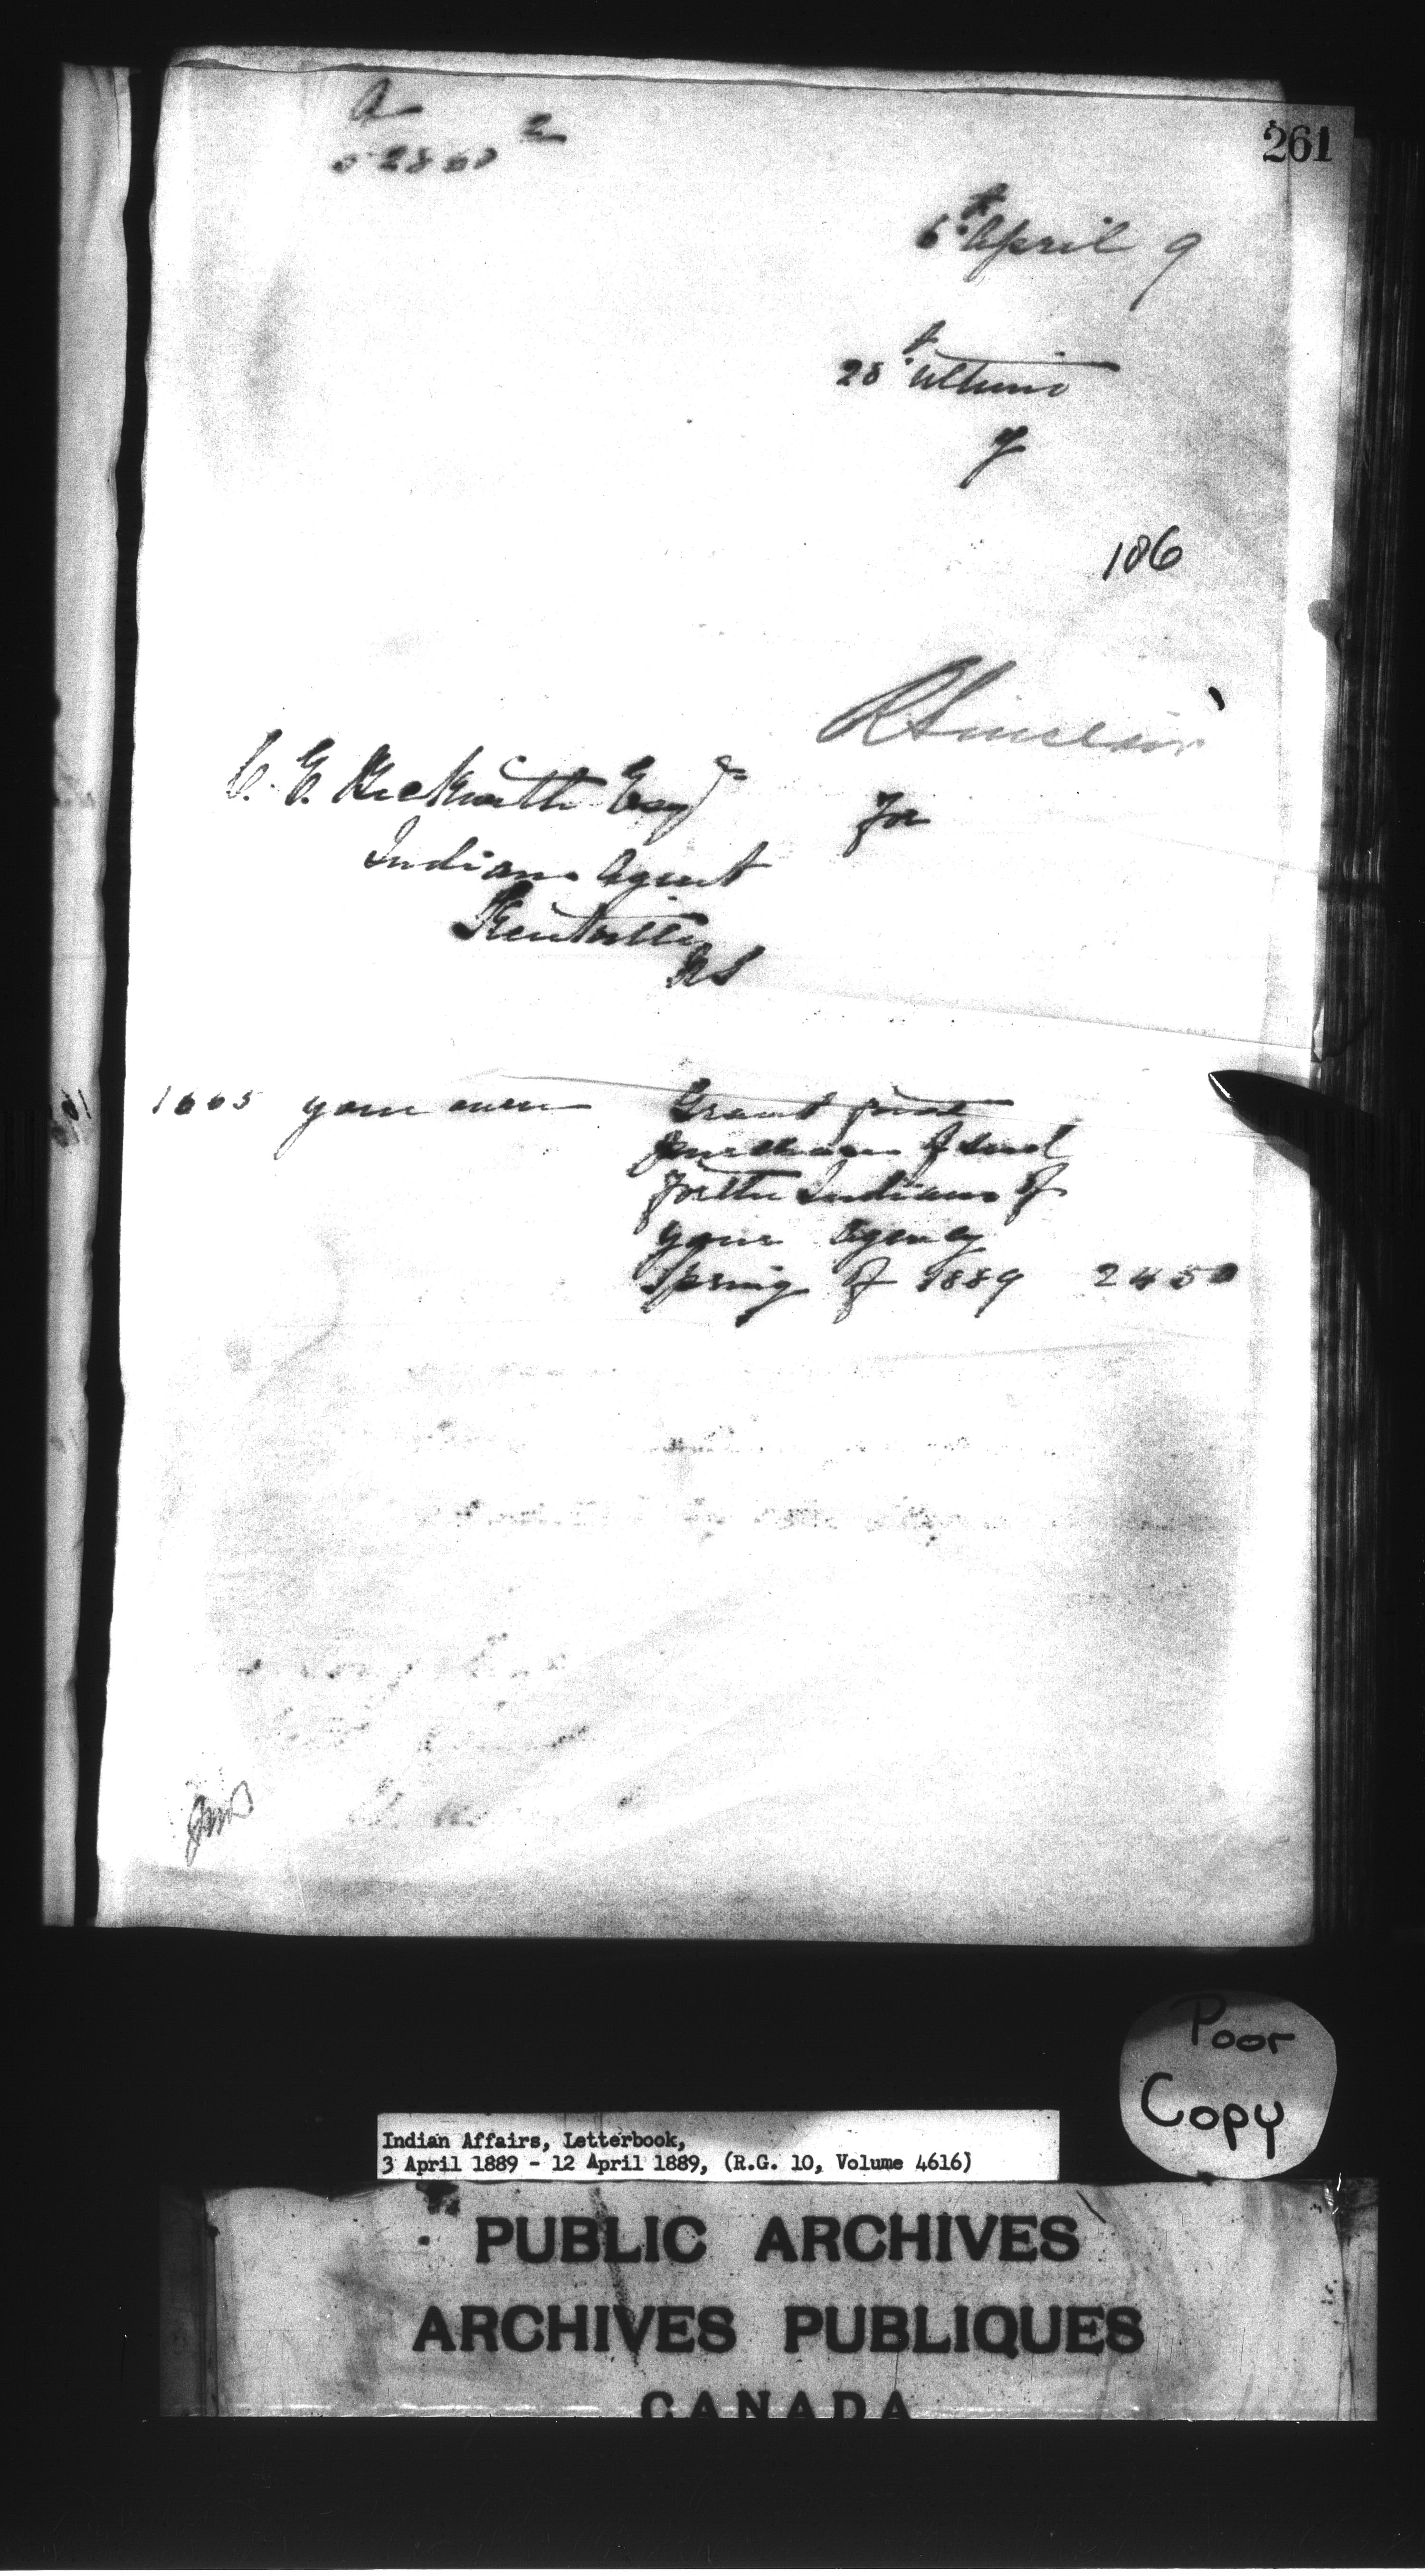 261
A
52860 2
6th April 9
28th Ultimo
y
186
R Sinclair
for
C. E. Beckwith Esqre
Indian Agent
Kentville
NS
1665 your own Grant for
purchase of seed
for the Indians of
your Agency
Spring of 1889 24 50
Poor
Copy
Indian Affairs, Letterbook,
3 April 1889 - 12 April 1889, (R.G. 10, Volume 4616)
PUBLIC ARCHIVES
ARCHIVES PUBLIQUES
CANADA